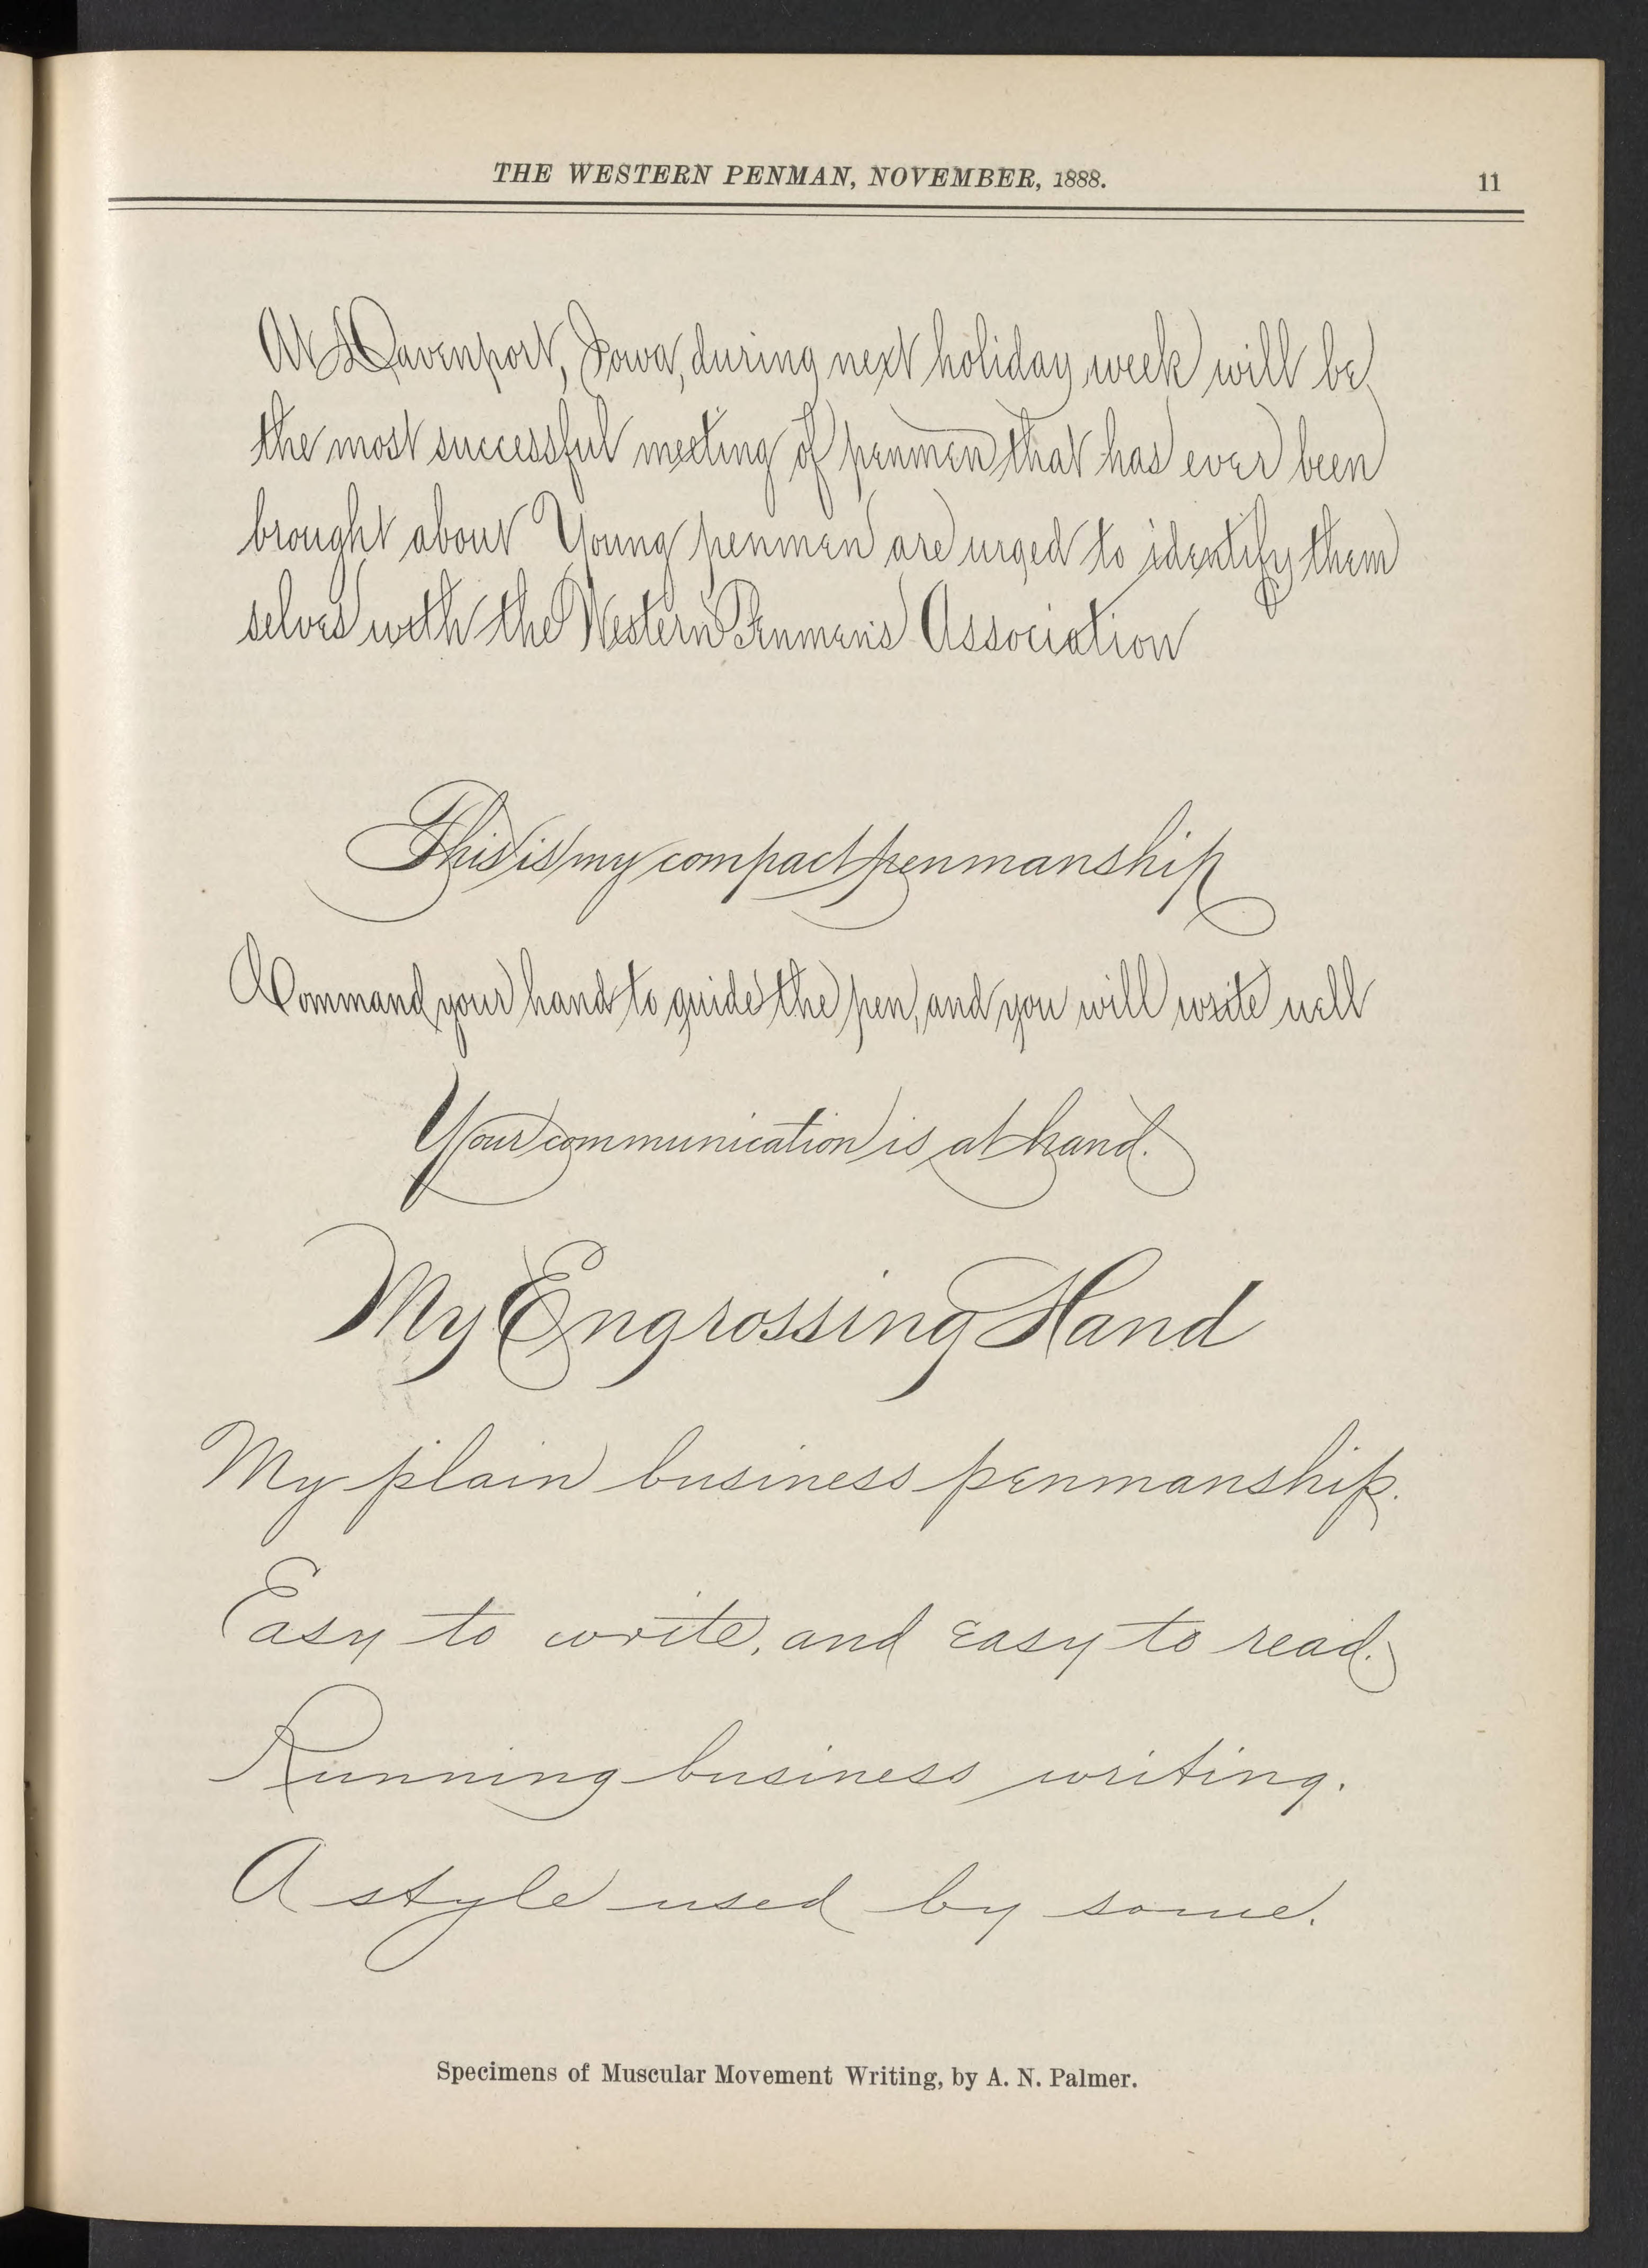 THE WESTERN PENMAN, NOVEMBER, 1888.
11
At Davenport, Iowa, during next holiday week will be
the most successful meeting of penmen that has ever been
brought about Young penmen are urged to identify them
selves with the Western Penmen's Association
This is my compact penmanship
Command your hand to guide the pen, and you will write well
Your communication is at hand.
My Engrossing Hand
My plain business penmanship.
Easy to write, and easy to read.
Running business writing.
A style used by some.
Specimens of Muscular Movement Writing, by A. N. Palmer.